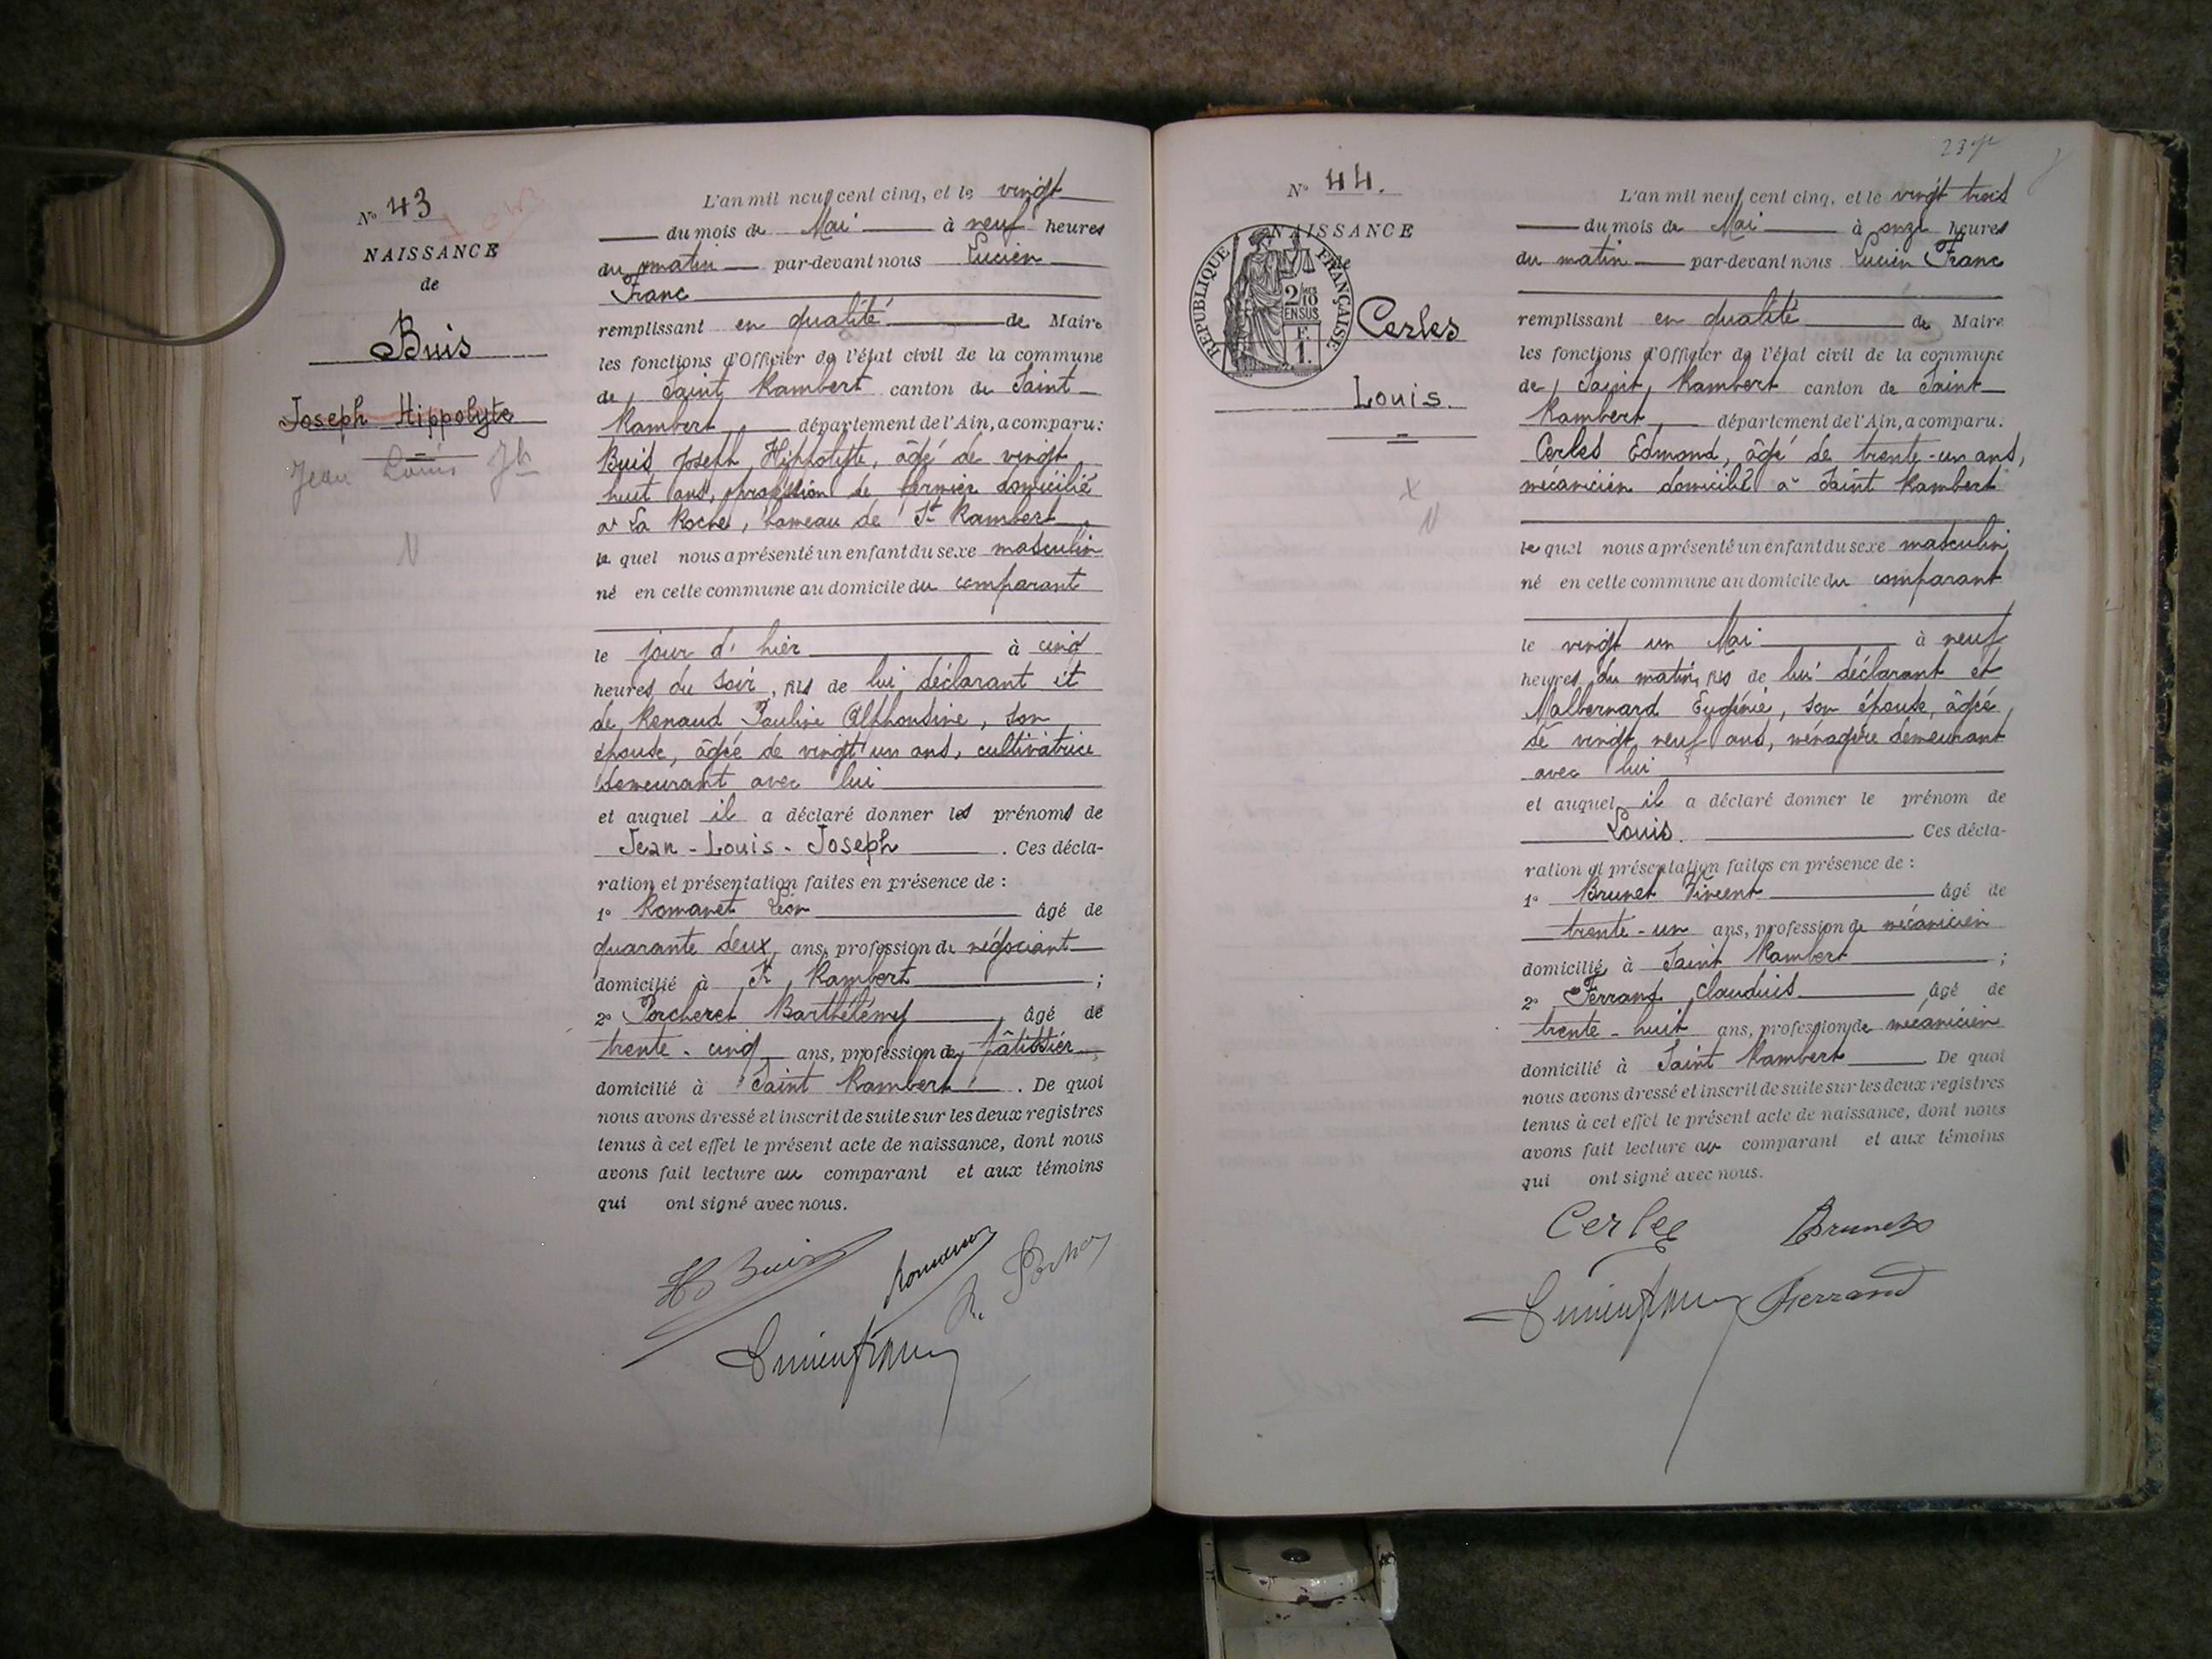 N° 43
NAISSANCE
de
Buis
Joseph Hippolyte
Jean Louis Jh
N
L'an mil neuf cent cinq, et le vingt
du mois de Mai à neuf heures
du matin par-devant nous Lucien
Franc
remplissant en qualité de Maire
les fonctions d'Officier de l'état civil de la commune
de Saint Rambert canton de Saint
Rambert département de l'Ain, a comparu:
Buis Joseph Hippolyte, âgé de vingt
huit ans, profession de fermier domicilié
à La Roche, hameau de St Rambert
le quel nous a présenté un enfant du sexe masculin
né en cette commune au domicile du comparant
le jour d'hier à cinq
heures du soir, fils de lui déclarant et
de Renaud Pauline Alphonsine, son
épouse, âgée de vingt un ans, cultivatrice
demeurant avec lui
et auquel il a déclaré donner les prénoms de
Jean-Louis-Joseph . Ces décla-
ration et présentation faites en présence de :
1° Romanet Léon âgé de
quarante deux ans, profession de négociant
domicilié à St Rambert ;
2° Porcheret Barthélémy âgé de
trente-cinq ans, profession de pâtissier
domicilié à Saint Rambert . De quoi
nous avons dressé et inscrit de suite sur les deux registres
tenus à cet effet le présent acte de naissance, dont nous
avons fait lecture au comparant et aux témoins
qui ont signé avec nous.
H Buis
Lucien Franc
N° 44.
NAISSANCE
de
REPUBLIQUE FRANÇAISE
2/10
EN SUS
F.
1.
Cerles
Louis.
x
N
L'an mil neuf cent cinq, et le vingt trois
du mois de Mai à onze heures
du matin par-devant nous Lucien Franc
remplissant en qualité de Maire
les fonctions d'Officier de l'état civil de la commune
de Saint Rambert canton de Saint
Rambert département de l'Ain, a comparu:
Cerles Edmond, âgé de trente-un ans,
mécanicien domicilié à Saint Rambert
le quel nous a présenté un enfant du sexe masculin
né en cette commune au domicile du comparant
le vingt un Mai à neuf
heures du matin, fils de lui déclarant et
Malbernard Eugénie, son épouse, âgée
de vingt neuf ans, ménagère demeurant
avec lui
et auquel il a déclaré donner le prénom de
Louis. . Ces décla-
ration et présentation faites en présence de :
1° Brunet Vincent âgé de
trente-un ans, profession de mécanicien
domicilié à Saint Rambert ;
2° Ferrand Claudius âgé de
trente-huit ans, profession de mécanicien
domicilié à Saint Rambert . De quoi
nous avons dressé et inscrit de suite sur les deux registres
tenus à cet effet le présent acte de naissance, dont nous
avons fait lecture au comparant et aux témoins
qui ont signé avec nous.
Cerles Brunet
Lucien Franc Ferrand